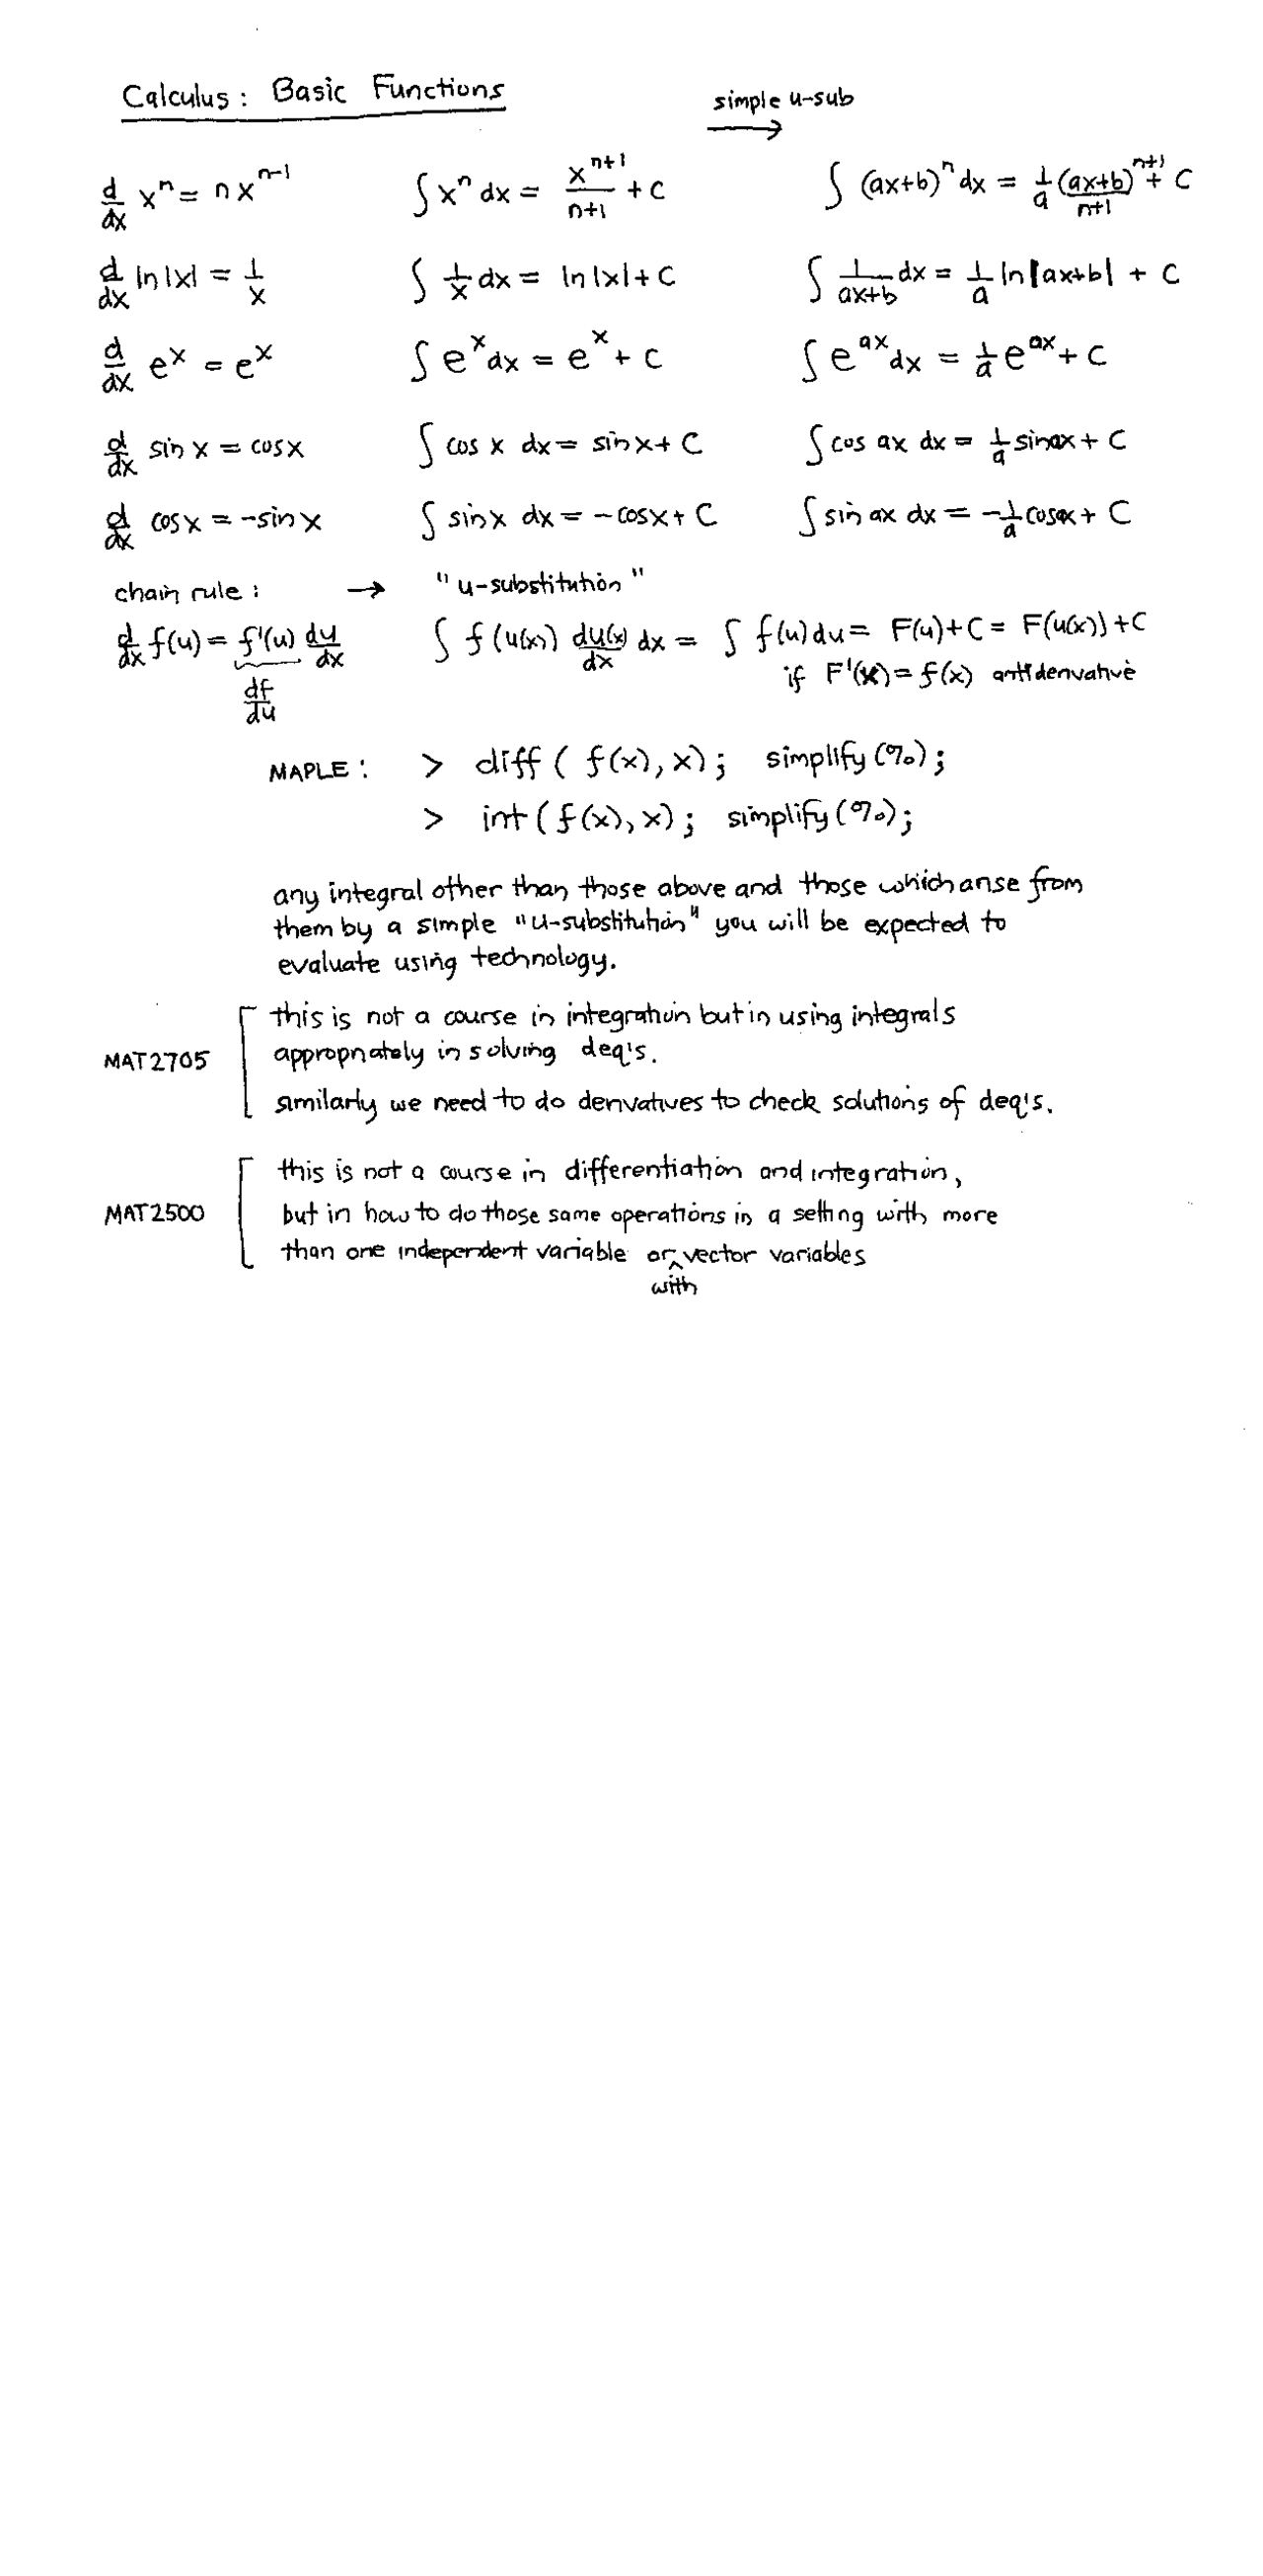 Calculus: Basic Functions
simple u-sub →
d/dx xⁿ = n xⁿ⁻¹   ∫ xⁿ dx = xⁿ⁺¹/(n+1) + C   ∫ (ax+b)ⁿ dx = 1/a (ax+b)ⁿ⁺¹/(n+1) + C
d/dx ln|x| = 1/x   ∫ 1/x dx = ln|x| + C   ∫ 1/(ax+b) dx = 1/a ln|ax+b| + C
d/dx eˣ = eˣ   ∫ eˣ dx = eˣ + C   ∫ eᵃˣ dx = 1/a eᵃˣ + C
d/dx sin x = cos x   ∫ cos x dx = sin x + C   ∫ cos ax dx = 1/a sin ax + C
d/dx cos x = -sin x   ∫ sin x dx = -cos x + C   ∫ sin ax dx = -1/a cos ax + C
chain rule: → "u-substitution"
d/dx f(u) = f'(u) du/dx   ∫ f(u(x)) du(x)/dx dx = ∫ f(u) du = F(u) + C = F(u(x)) + C
df/du   if F'(x) = f(x) antiderivative
MAPLE: > diff ( f(x), x); simplify(%);
> int ( f(x), x); simplify(%);
any integral other than those above and those which arise from
them by a simple "u-substitution" you will be expected to
evaluate using technology.
this is not a course in integration but in using integrals
MAT2705 appropriately in solving deq's.
similarly we need to do derivatives to check solutions of deq's.
this is not a course in differentiation and integration,
MAT2500 but in how to do those same operations in a setting with more
than one independent variable or ^ vector variables
with